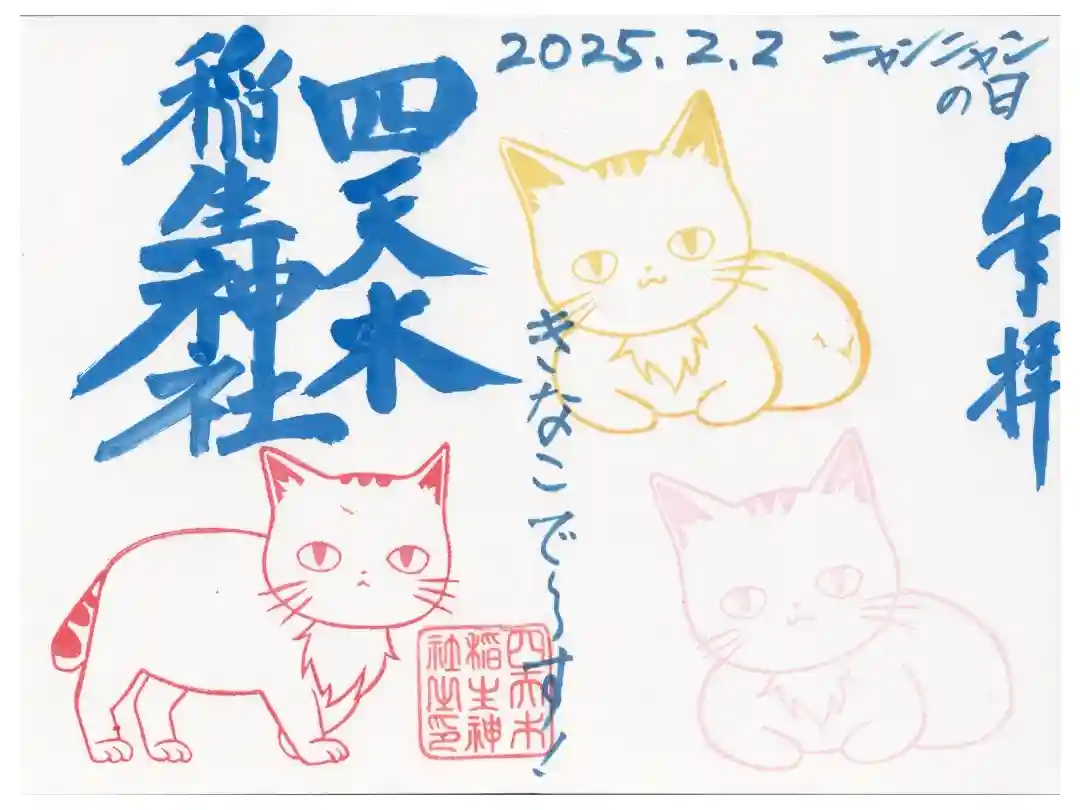 2025.2.2 ニャンニャン
の日
奉拝
四天木
稲生神社
きなこで〜す!
四天木
稲生神
社之印